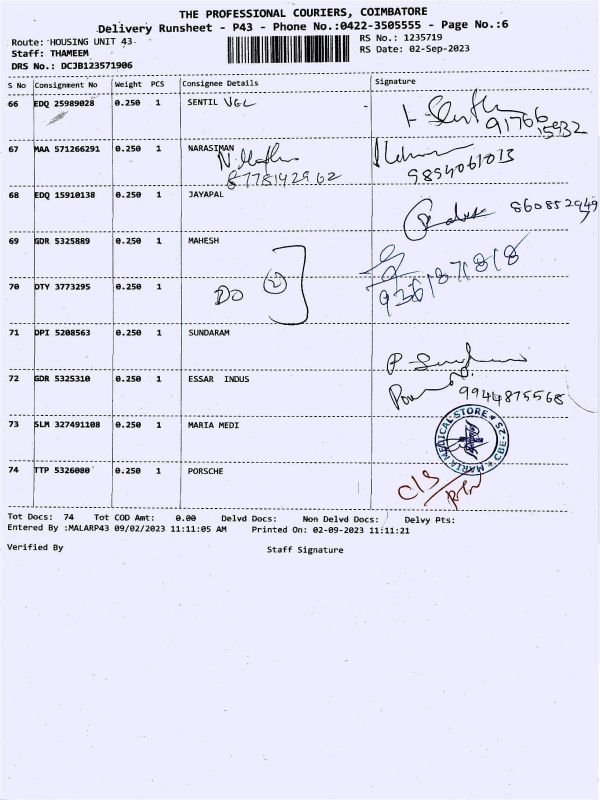 THE PROFESSIONAL COURIERS, COIMBATORE
Delivery Runsheet - P43 - Phone No.:0422-3505555 - Page No.:6
Route: HOUSING UNIT 43
RS No.: 1235719
Staff: THAMEEM
RS Date: 02-Sep-2023
DRS No.: DCJB123571906
S No Consignment No Weight PCS Consignee Details Signature
66 EDQ 25989028 0.250 1 SENTIL VGL
91766
15932
67 MAA 571266291 0.250 1 NARASIMAN
8778142962
9854061013
68 EDQ 15910138 0.250 1 JAYAPAL
860852949
69 GDR 5325889 0.250 1 MAHESH
9361871818
70 DTY 3773295 0.250 1 DO 2
71 DPI 5208563 0.250 1 SUNDARAM
72 GDR 5325310 0.250 1 ESSAR INDUS
9944875568
73 SLM 327491108 0.250 1 MARIA MEDI
MARIA MEDICAL STORE CBE-25
74 TTP 5326080 0.250 1 PORSCHE
C/S
Tot Docs: 74 Tot COD Amt: 0.00 Delvd Docs: Non Delvd Docs: Delvy Pts:
Entered By :MALARP43 09/02/2023 11:11:05 AM Printed On: 02-09-2023 11:11:21
Verified By Staff Signature